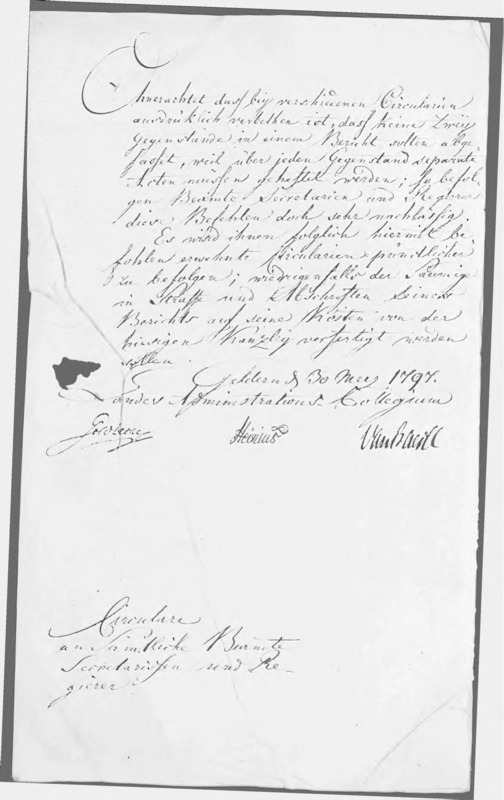 Ohnerachtet dass bey verschiedenen Circularien
ausdrücklich verbothen ist, dass keine zwey
Gegenstände in einem Bericht sollen abge-
fasset, weil über jeden Gegenstand separate
Acten müssen geheftet werden; so befol-
gen Beamte Secretarien und Regierer
diese Befehlen doch sehr nachlässig.
Es wird ihnen folglich hiermit be-
fohlen erwehnte Circularien pünctlicher
zu befolgen; wiedrigenfalls der Säumige
in Straffe und Abschriften seines
Berichts auf seine Kösten von der
hiesigen Kanzley verfertigt werden
sollen.
Geldern d 30 Mey 1797.
Landes Administrations Collegium
Heinius
Circulare
an Sämtliche Beamte
Secretarissen und Re-
gierer